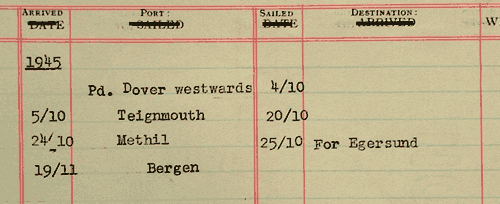 ARRIVED PORT: SAILED DESTINATION:
DATE SAILED DATE ARRIVED W
1945
Pd. Dover westwards 4/10
5/10 Teignmouth 20/10
24/10 Methil 25/10 For Egersund
19/11 Bergen